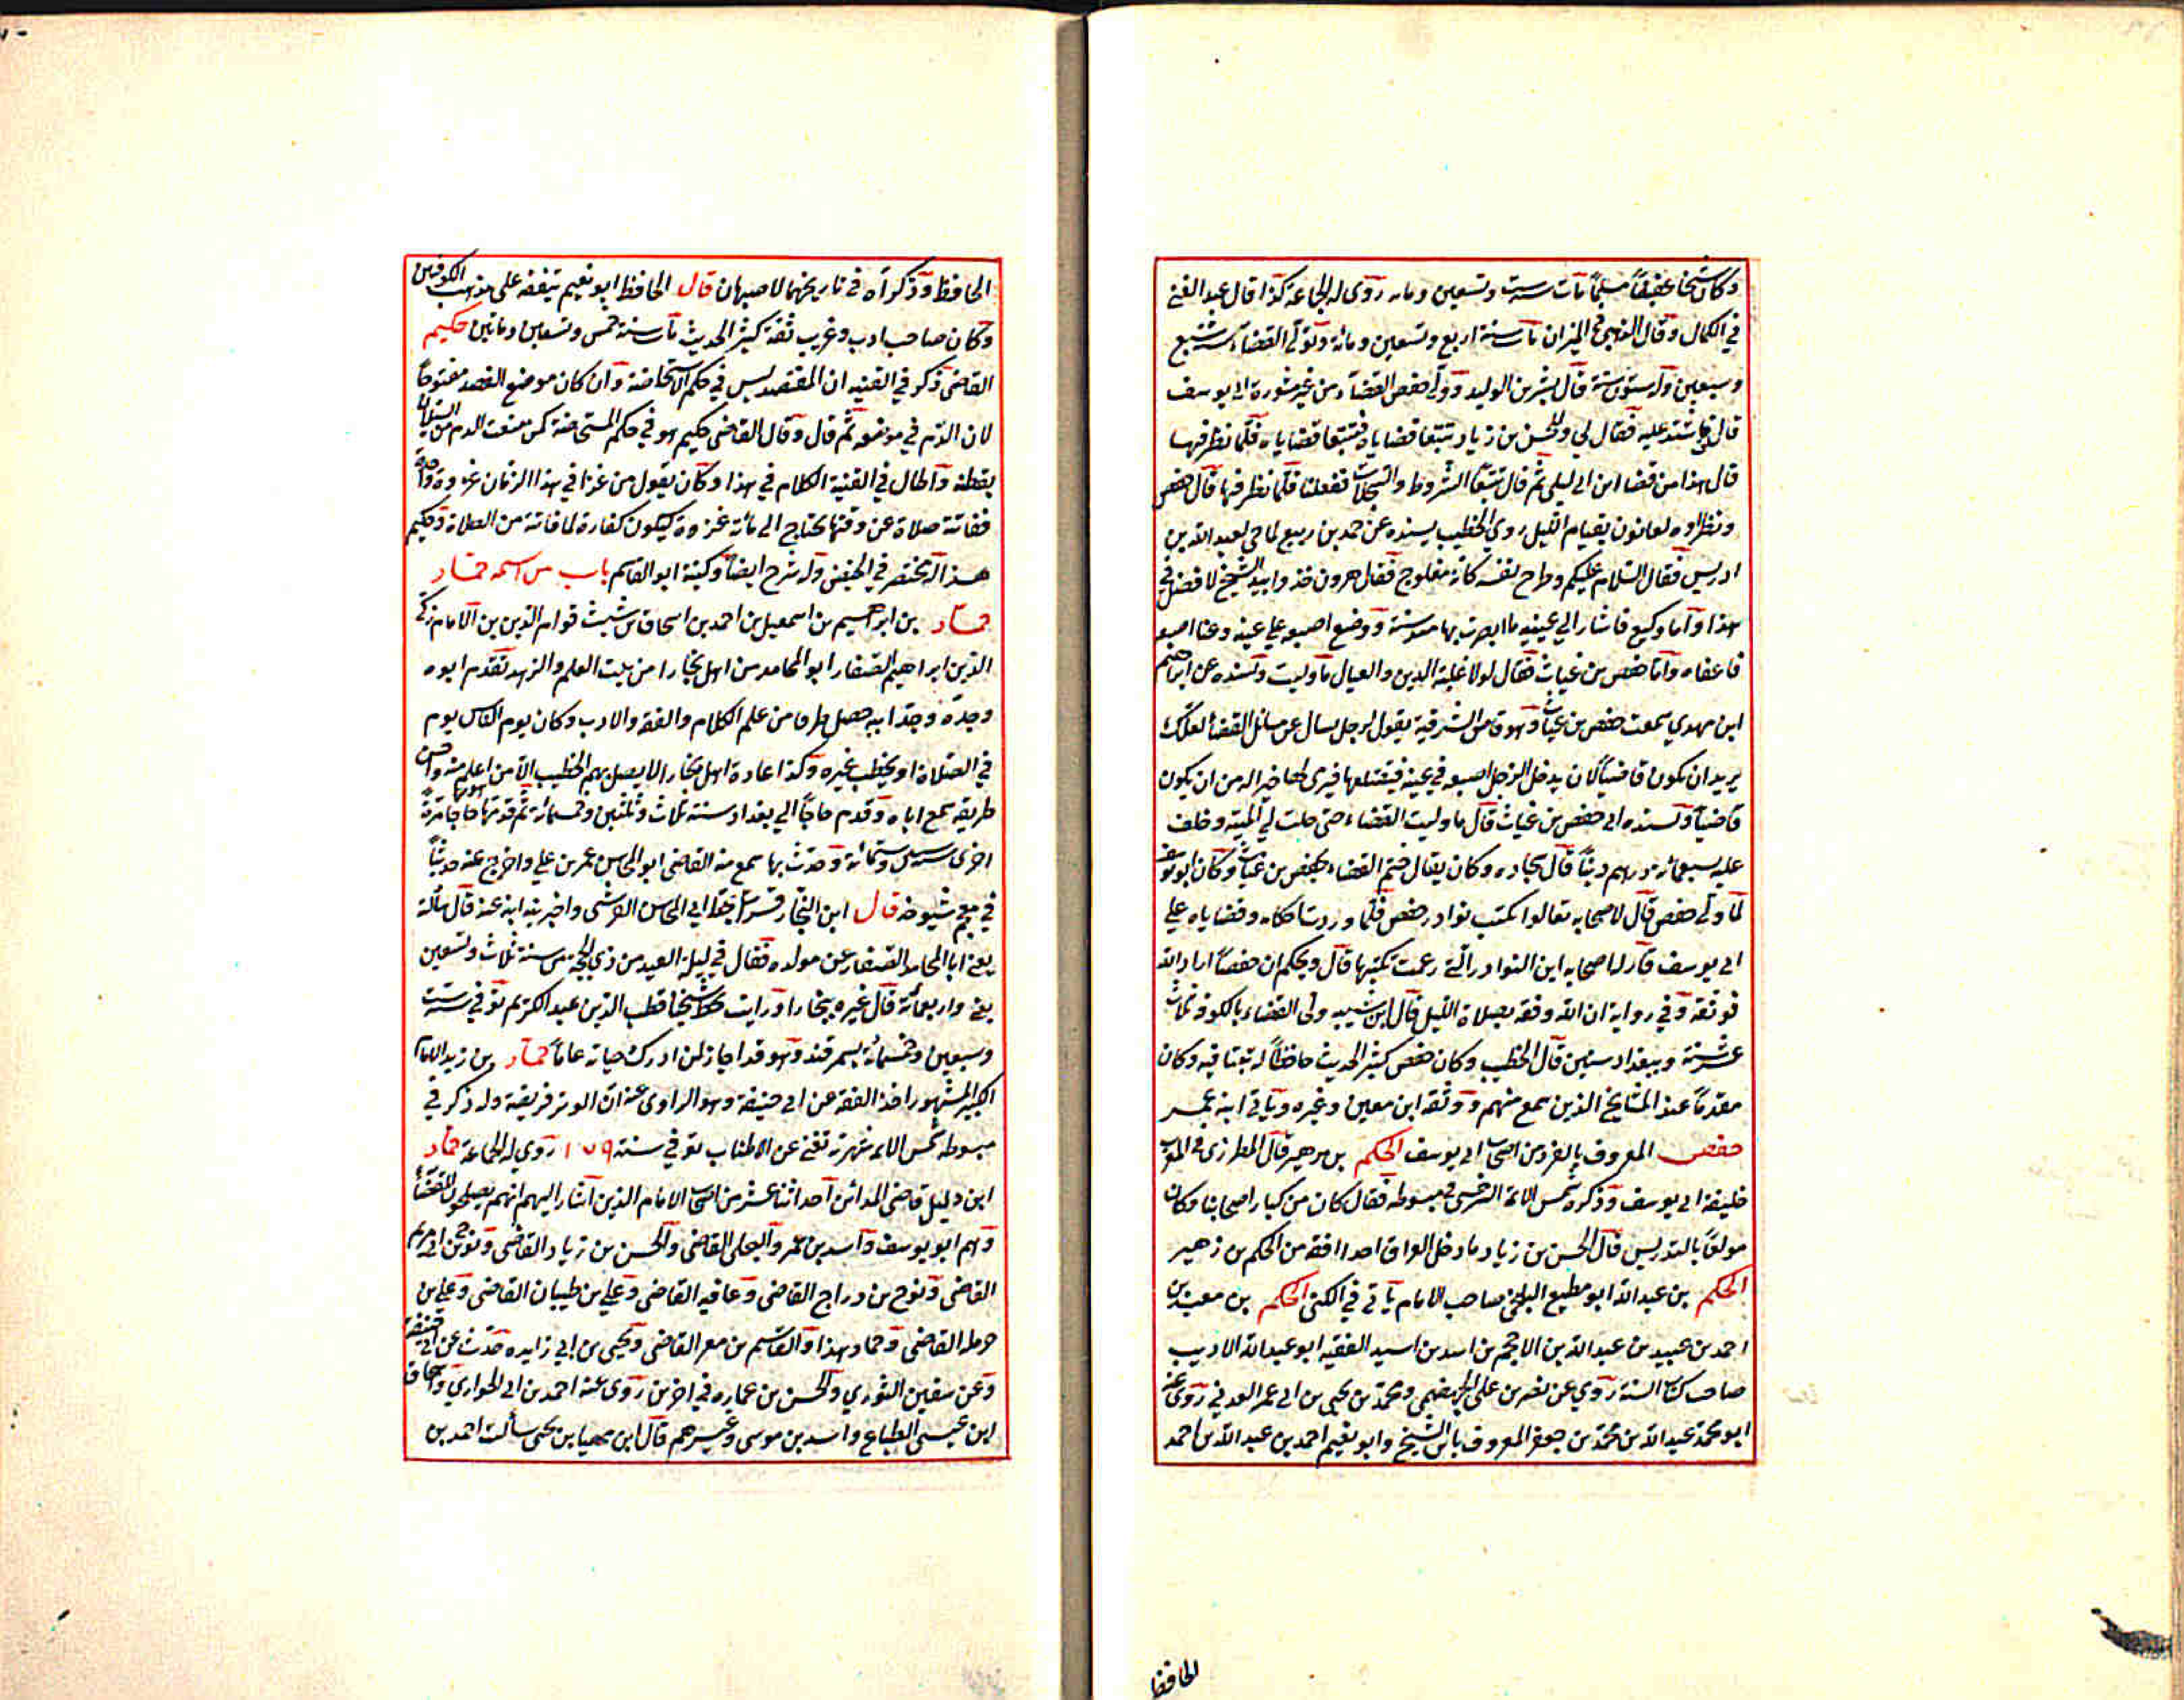 وكان شيخا عفيفا مسلما مات سنة ست وتسعين ومايه روى له الجاعة كذا قال عبد الغني
في الكمال وقال الذهبي في الميزان مات سنة اربع وتسعين ومائة وتولى القضاء سنة سبع
وسبعين وله ستون سنة قال بشر بن الوليد وولي حفص القضاء من غير مشورة ابي يوسف
قال فاشتد عليه فقال لي وللحسن بن زياد تتبعا قضاياه فتتبعنا قضاياه فلما نظر فيها
قال هذا من قضا ابن ابي ليلى ثم قال تتبعا الشروط والسجلات ففعلنا فلما نظر فيها قال حفص
ونظراوه يعانون بقيام الليل روى الخطيب بسنده عن حمد بن ربيع لما جي بعبد الله بن
ادريس فقال السلام عليكم وطرح نفسه كانه مفلوج فقال هرون خذوا بيد الشيخ لا فضل في
هذا واما وكيع فاشار الي عينيه ما ابصرت بها منذ سنة ووضع اصبعه علي عينه وعنا اصبعه
فاعفاه واما حفص بن غياث فقال لولا غلبة الدين والعيال ما وليت وبسنده عن ابراهيم
ابن مهدي سمعت حفص بن غياث وهو قاض الشرقية يقول لرجل يسال عن مسائل القضاء لعلك
يريد ان تكون قاضيا لان يدخل الرجل اصبعه في عينه فيقتلعها فيرمى بها خير له من ان يكون
قاضيا وبسنده الى حفص بن غياث قال ما وليت القضاء حتى حلت لي الميتة وخلف
عليه سبعمائة درهم دينا قال سجادة وكان يقال ختم القضاء بحفص بن غياث وكان ابو يوسف
لما ولي حفص قال لاصحابه تعالوا نكتب نوادر حفص فلما وردت احكامه وقضاياه علي
ابي يوسف قال له اصحابه اين النوادر التي زعمت نكتبها قال ويحكم ان حفصا اراد الله
فوفقه وفي رواية ان الله وفقه بصلاة الليل قال ابن شيبه ولي القضاء بالكوفة ثلاث
عشرة سنة وببغداد سنتين قال الخطيب وكان حفص كثير الحديث حافظا له ثبتا فيه وكان
مقدما عند المشايخ الذين سمع منهم ووثقه ابن معين وغيره وياتي ابنه عمر
حفص المعروف بالفرد من اصحاب ابي يوسف الحكم بن زهير قال المطرزى في المغرب
خليفة ابي يوسف وذكره شمس الائمة السرخسى في مبسوطه فقال كان من كبار اصحابنا وكان
مولعا بالتدريس قال الحسن بن زياد ما دخل العراق احد افقه من الحكم بن زهير
الحكم بن عبد الله ابو مطيع البلخي صاحب الامام ياتي في الكنى الحكم بن معبد بن
احمد بن عبيد بن عبد الله بن الاحجم بن اسد بن اسيد الفقيه ابو عبد الله الاديب
صاحب كتاب السنة روي عن نصر بن على الجهضمي ومحمد بن يحيى بن ابي عمر العدني روى عنه
ابو محمد عبد الله بن محمد بن جعفر المعروف بابي الشيخ وابو نعيم احمد بن عبد الله بن احمد
الحافظ
الحافظ وذكراه في تاريخهما لاصبهان قال الحافظ ابو نعيم يتفقه على مذهب الكوفيين
وكان صاحب ادب وغريب ثقة كثير الحديث مات سنة خمس وتسعين ومايتين حكيم
القاضى ذكر في القنيه ان المفتصد ليس في حكم الاستحاضة وان كان موضع الفصد مفتوحا
لان الدم في موضعه ثم قال وقال القاضي حكيم هو في حكم المستحاضة كمن منعت الدم من السيلان
بقطنة واطال في القنية الكلام في هذا وكان يقول من غزا في هذا الزمان غزوة واحدة
ففاتته صلاة عن وقتها يحتاج الى مائة غزوة ليكون كفارة لما فاتته من الصلاة وحكيم
هذا له مختصر في الحيض وله شرح ايضا وكنيته ابو القاسم باب من اسمه حماد
حماد بن ابراهيم بن اسمعيل بن احمد بن اسحاق بن شيث قوام الدين بن الامام زكي
الدين ابراهيم الصفار ابو المحامد من اهل بخارا من بيت العلم والزهد تقدم ابوه
وجده وجد ابيه حصل طرفا من علم الكلام والفقه والادب وكان يوم الناس يوم
في الصلاة او يخطب غيره وكذا عادة اهل بخارا لا يصلى بهم الخطيب الا من اعلم منه واحسن
طريقة سمع اباه وقدم حاجا الي بغداد سنة ثلاث وثلثين وخمسمائة ثم قدمها حاجا مرة
اخرى سنة ستين وستمائة وحدث بها سمع منه القاضى ابو المحاسن عمر بن علي واخرج عنه حديثا
في معجم شيوخه قال ابن النجار قرات بخط ابي المحاسن القرشى واخبرنيه ابنه عنه قال سألته
يعني ابا المحامد الصفار عن مولده فقال في ليلة العيد من ذي الحجة من سنة ثلاث وتسعين
يعني واربعمائة قال غيره ببخارا ورايت بخط شيخنا قطب الدين عبد الكريم توفي سنة ست
وسبعين وخمسمائة بسمرقند وهو قد اجاز لمن ادرك حياته عاما حماد بن زيد الامام
الكبير المشهور اخذ الفقه عن ابي حنيفة وهو الراوى عنه ان الوتر فريضة وله ذكر في
مبسوط شمس الائمة شهرته تغني عن الاطناب توفي سنة ١٧٩ روي له الجماعة حماد
ابن دليل قاضى المدائن احد اثنا عشر من اصحاب الامام الذين اشار اليهم انهم يصلحون للقضاء
وهم ابو يوسف واسد بن عمر والبجلي القاضى والحسن بن زياد القاضى ونوح بن ابي مريم
القاضى ونوح بن دراج القاضى وعافيه القاضى وعلي بن طبيان القاضى وعلي بن
حرمله القاضى وحماد هذا والقاسم بن معن القاضى ويحيى بن ابي زايده حدث عن ابي حنيفة
وعن سفين الثوري والحسن بن عماره في اخرين روى عنه احمد بن ابي الحواري واسحاق
ابن عيسى الطباع واسد بن موسى وغيرهم قال ابن مهيا بن يحيى سألت احمد بن